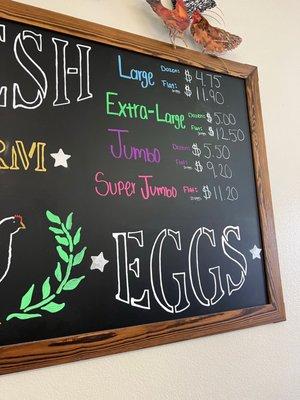 SH
RM
Large Dozen: $ 4.75
Flat: $ 11.90
Extra-Large Dozen: $ 5.00
Flat: $ 12.50
Jumbo Dozen: $ 5.50
Flat: $ 9.20
Super Jumbo Flat: $ 11.20
EGGS